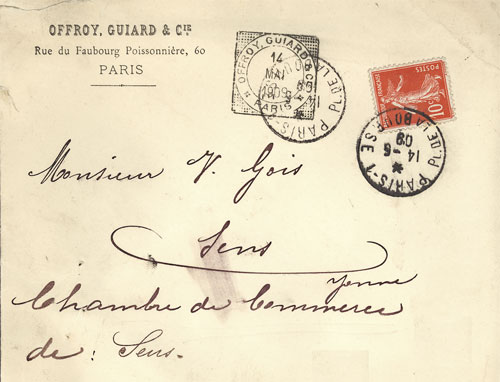 OFFROY, GUIARD & CIE
Rue du Faubourg Poissonnière, 60
PARIS
OFFROY, GUIARD & CO
14
MAI
1909
PARIS
PARIS-1 PL. DE LA BOURSE
POSTES
10
PARIS-1 PL. DE LA BOURSE
14 - 6
09
Monsieur V. Gois
Sens
Yonne
Chambre de Commerce
de : Sens.